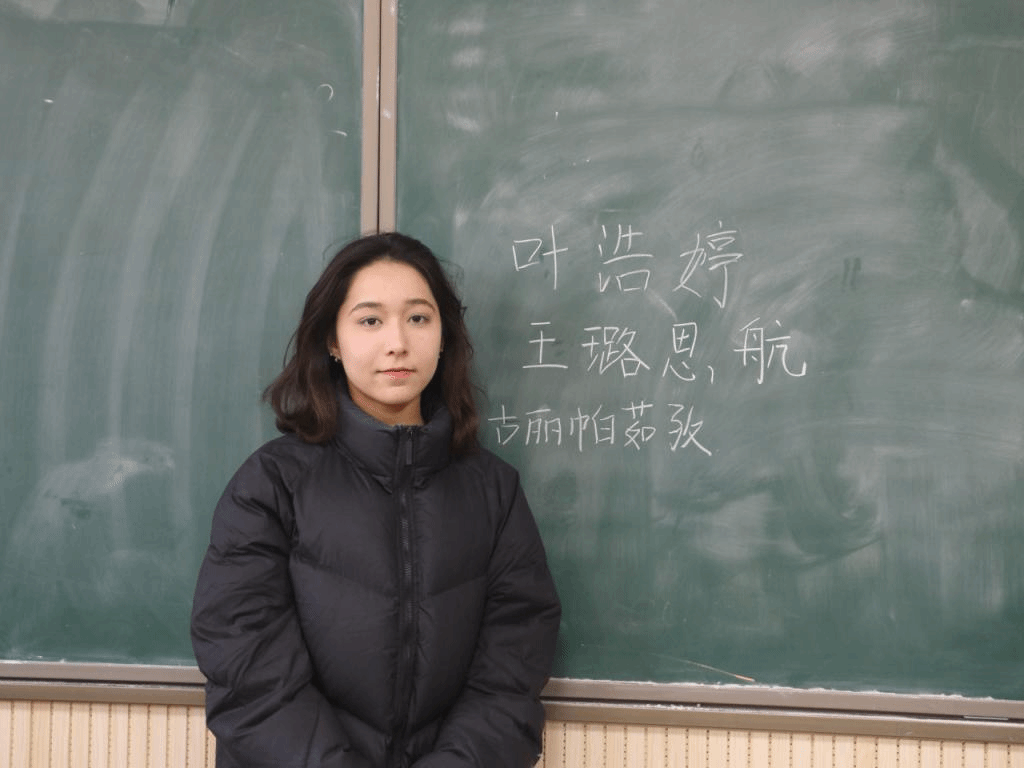 叶浩婷
王璐恩,航
古丽帕茹孜